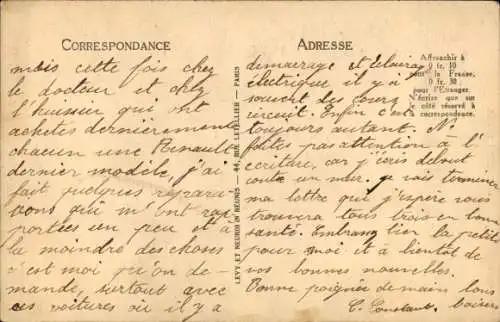 CORRESPONDANCE
mois cette fois chez
le docteur et chez
l'huissier qui ont
achetés dernièrement
chacun une Renault
dernier modèle, j'ai
fait quelques répara-
tions qui m'ont rap-
portées un peu et à
la moindre des choses
c'est moi qu'on de-
mande, surtout avec
ces voitures où il y a
LEVY ET NEURDIN REUNIS - 44, RUE LETELLIER - PARIS
ADRESSE
Affranchir à
0 fr. 10
pour la France,
0 fr. 30
pour l'Etranger.
N'écrire que sur
le côté réservé à
correspondance.
démarrage et éclairage
électrique il y a
souvent des court
circuit. Enfin c'est
toujours autant. Ne
faites pas attention à l'
écriture, car j'écris debout
contre un mur. Je vais terminer
ma lettre qui j'espère vous
trouvera tous trois en bonne
santé. bien la petite
pour moi et à bientôt de
vos bonnes nouvelles.
Bonne poignée de mains tous
C. Constant. baisers